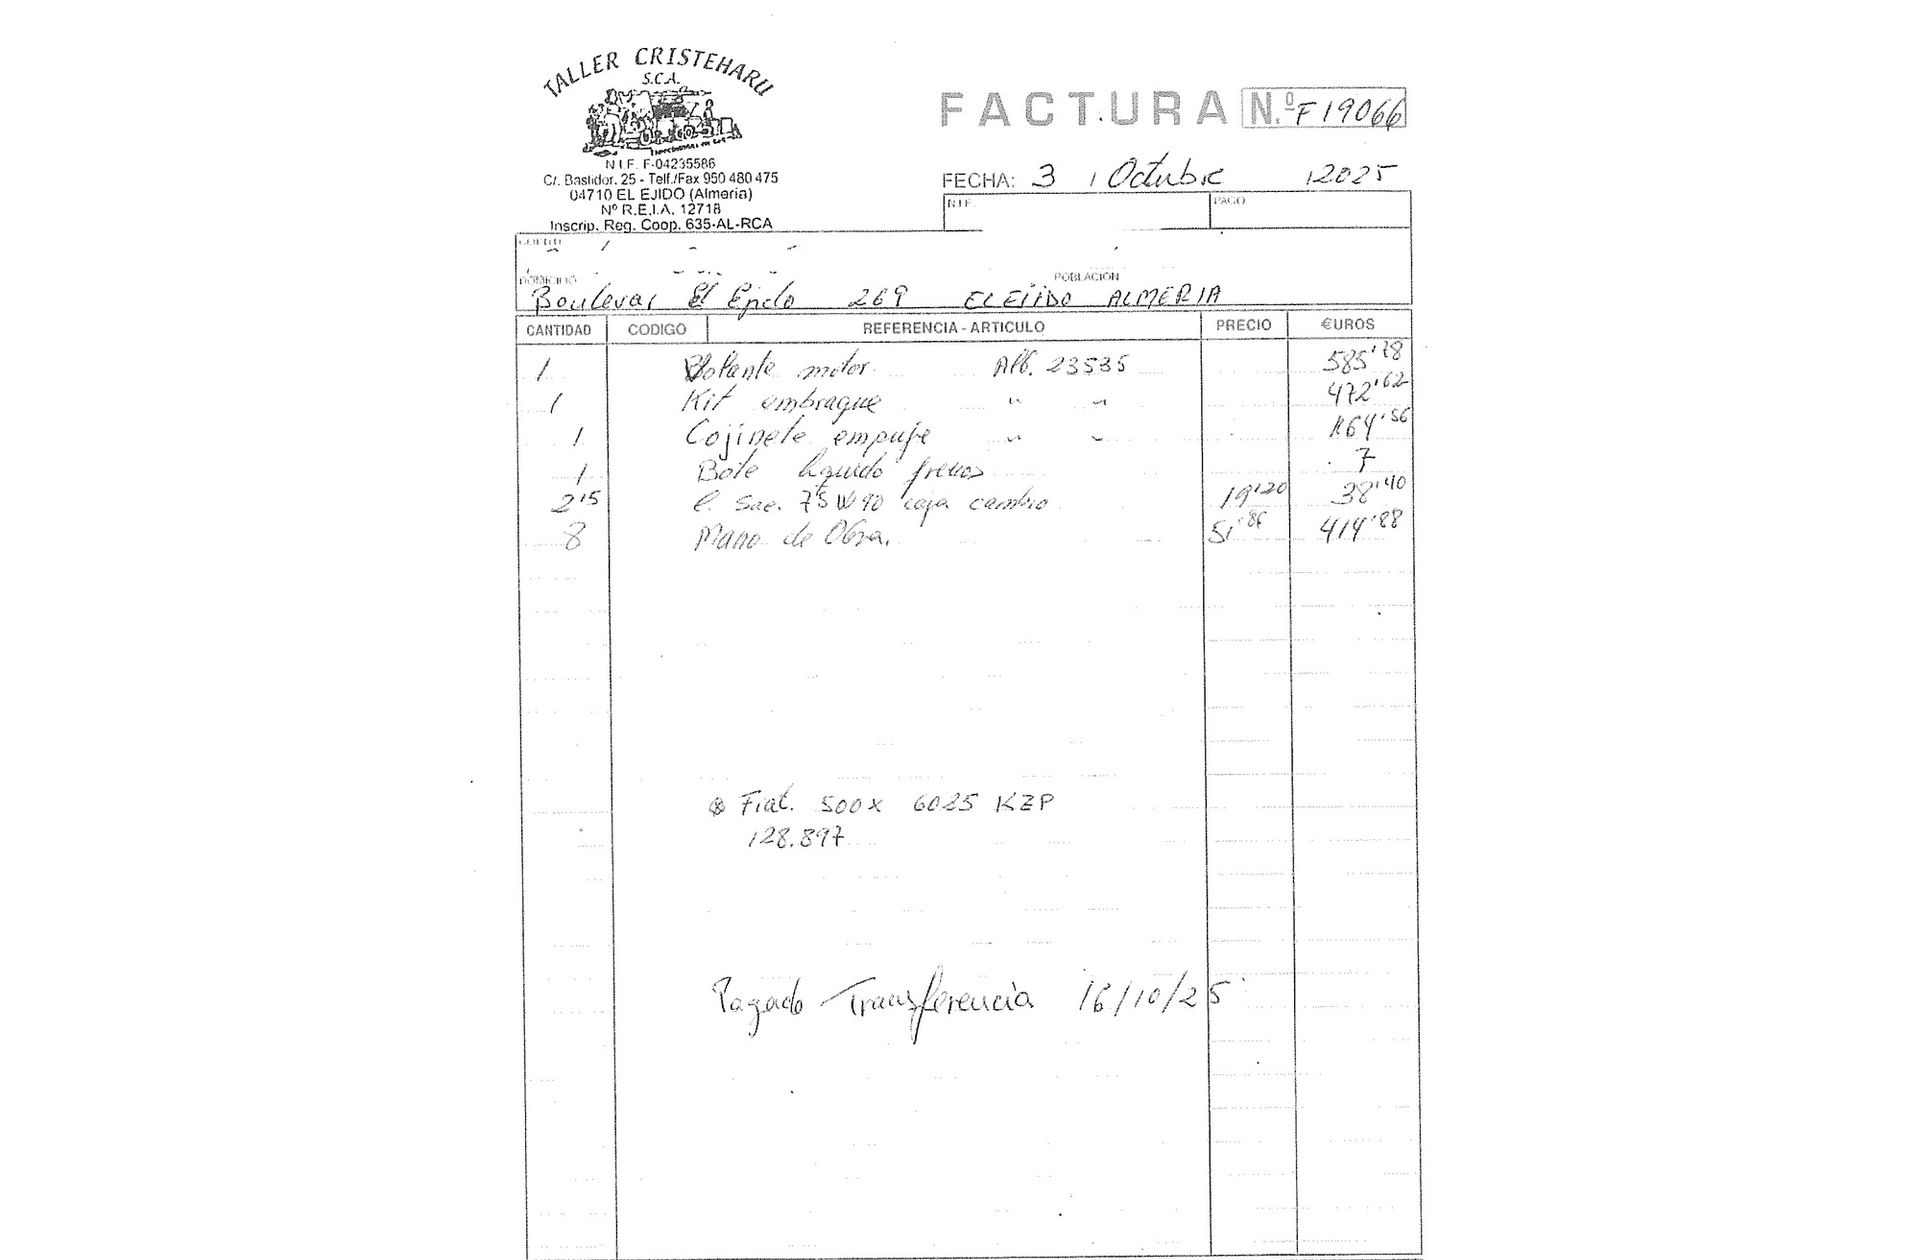 TALLER CRISTEHARU
S.C.A.
N.I.F. F-04235586
C/. Bastidor, 25 - Telf./Fax 950 480 475
04710 EL EJIDO (Almeria)
Nº R.E.I.A. 12718
Inscrip. Reg. Coop. 635-AL-RCA
FACTURA N.º F19066
FECHA: 3 Octubre 2025
N.I.F. PAGO
CLIENTE
DOMICILIO POBLACIÓN
Boulevar El Ejido 269 EL EJIDO ALMERIA
CANTIDAD CODIGO REFERENCIA - ARTICULO PRECIO €UROS
1 Volante motor Alb. 23535 585'28
1 Kit embrague " " 472'62
1 Cojinete empuje " " 164'56
1 Bote liquido frenos 7
2'5 l. Sae. 75W90 caja cambio 19'20 38'40
8 Mano de Obra. 51'86 414'88
Fiat. 500x 6025 KZP
128.897
Pagado Transferencia 16/10/25